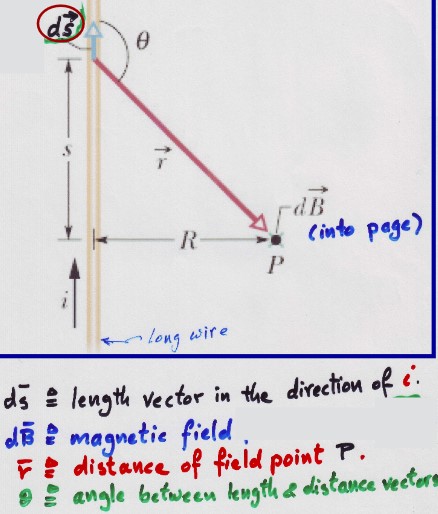 ds⃗
θ
s
r⃗
dB⃗
(into page)
R
P
i
long wire
ds̄ ≙ length vector in the direction of i.
dB̄ ≙ magnetic field.
r̄ ≙ distance of field point P.
θ ≙ angle between length & distance vectors